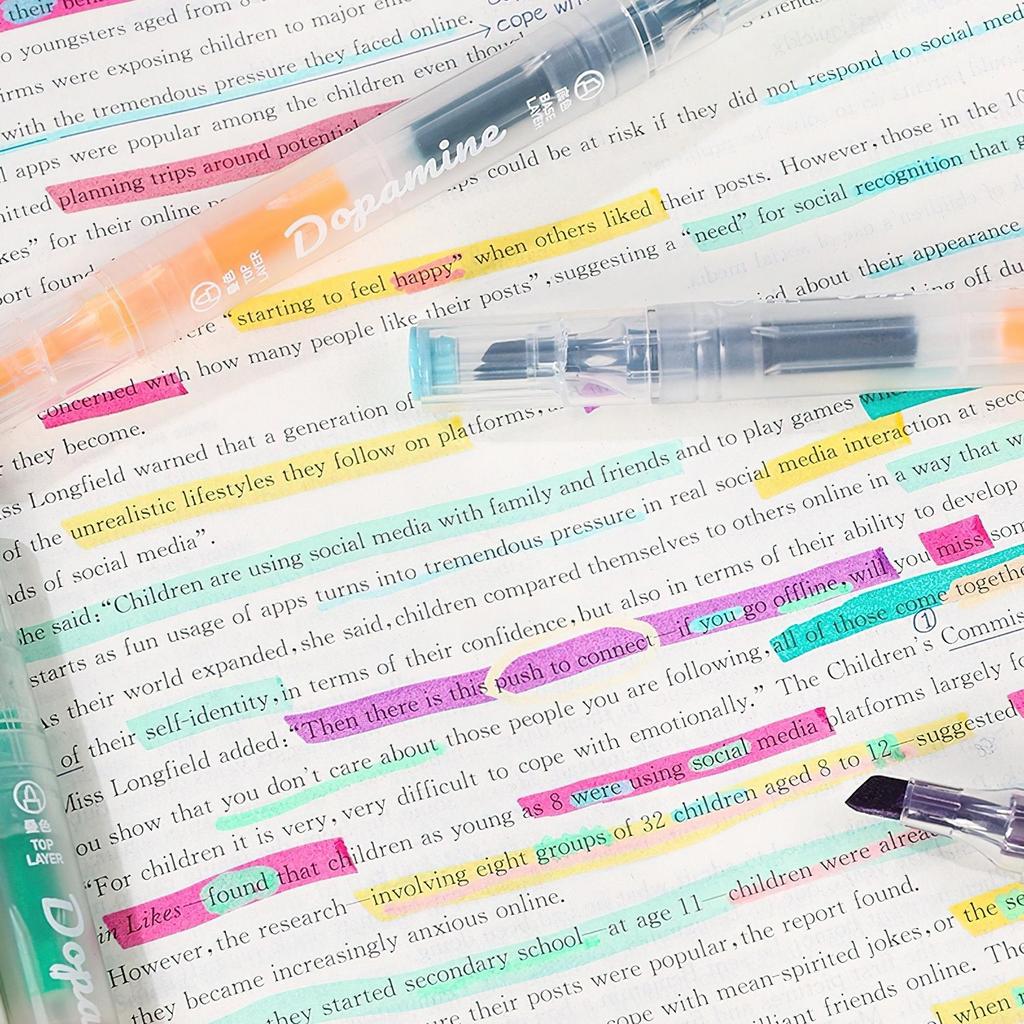 their
o youngsters aged from 8
cope wi
irms were exposing children to major em
with the tremendous pressure they faced online.
apps were popular among the children even thoug
not respond to social med
planning trips around potential
could be at risk if they did
mitted
kes" for their online
their posts. However, those in the 10
port found
"starting to feel happy" when others liked
"need" for social recognition that
concerned with how many people like their posts", suggesting a
about their appearance
they become.
off du
Miss Longfield warned that a generation of
of the unrealistic lifestyles they follow on platforms,
and to play games
nds of social media".
media interaction at
he said: "Children are using social media with family and friends
starts as fun usage of apps turns into tremendous pressure in real social
in a way that
As their world expanded, she said, children compared themselves to others online
of their self-identity, in terms of their confidence, but also in terms of their ability to develop
Miss Longfield added: "Then there is this push to connect—if you go offline, will you miss
ou show that you don't care about those people you are following, all of those come together
①
"For children it is very, very difficult to cope with emotionally." The Children's Commis
in Likes—found that children as young as 8 were using social media platforms largely
However, the research—involving eight groups of 32 children aged 8 to 12—suggested
they became increasingly anxious online.
they started secondary school—at age 11—children were alrea
their posts were popular, the report found.
cope with mean-spirited jokes, or the
brilliant friends online. The
when
Dopamine
叠色
TOP
LAYER
底色
BASE
LAYER
叠色
TOP
LAYER
Dopa